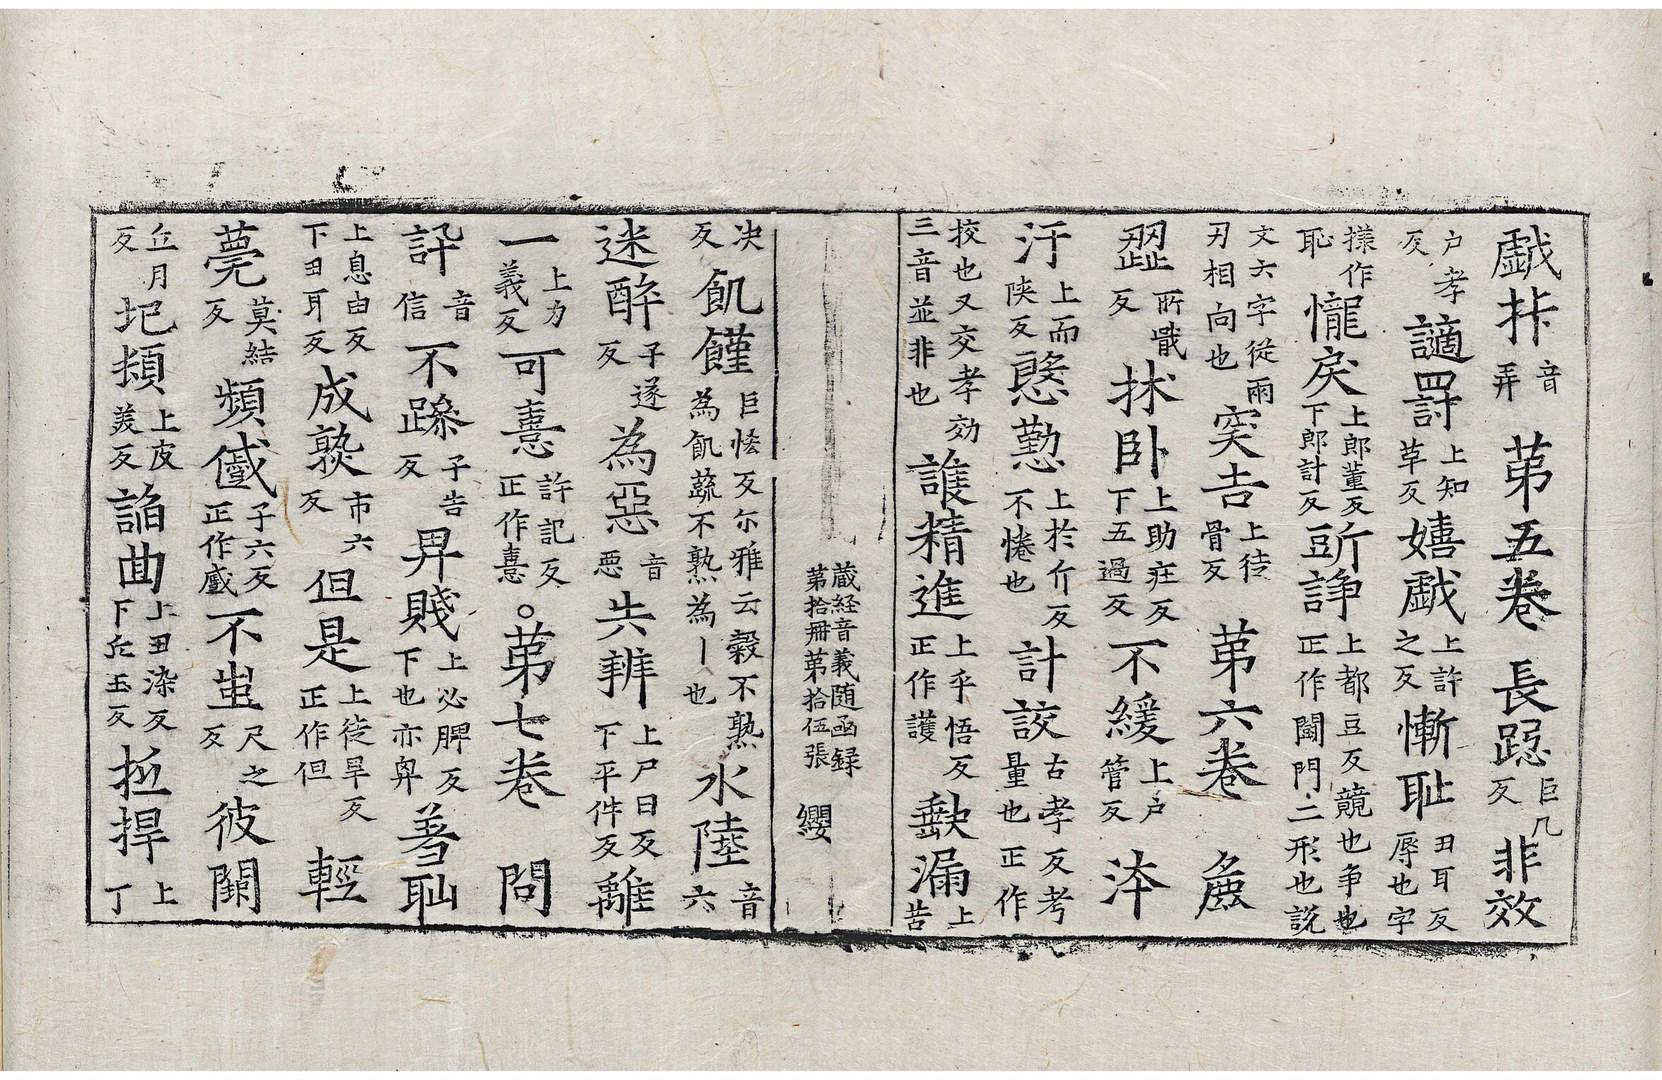 戱㧙音弄第五卷長跽巨几反非效
户孝反讁罰上知草反嬉戱上許之反慚耻丑耳反辱也字
樣作恥㦕戾上郎董反下郎計反諍上都豆反競也争也正作鬪鬥二形也說
文六字從兩刃相向也突吉上徒骨反第六卷麁
歰所戢反牀卧上助庄反下五過反不緩上户管反
汙上而陝反慇懃上於介反不惓也計詨古孝反考量也正作
挍也又交孝効三音並非也護精進上乎悟反正作護漏上苦
蔵経音義随函録第拾冊第拾伍張 纓
决反飢饉巨恡反尓雅云穀不熟為飢蔬不熟為丨也水陸音六
迷醉子遂反為惡音悪失辦上尸日反下平件反離
一上力義反可憙許記反正作憙。第七卷問
訊音信不躁子告反卑賤上必脾反下也亦𢌿羞耻
上息由反下丑耳反成熟市六反但是上徒旱反正作但輕
薨莫結反頻子六反正作蹙不蚩尺之反彼闌
丘月反圯上皮美反諂曲上丑染反下丘玉反抵捍上丁